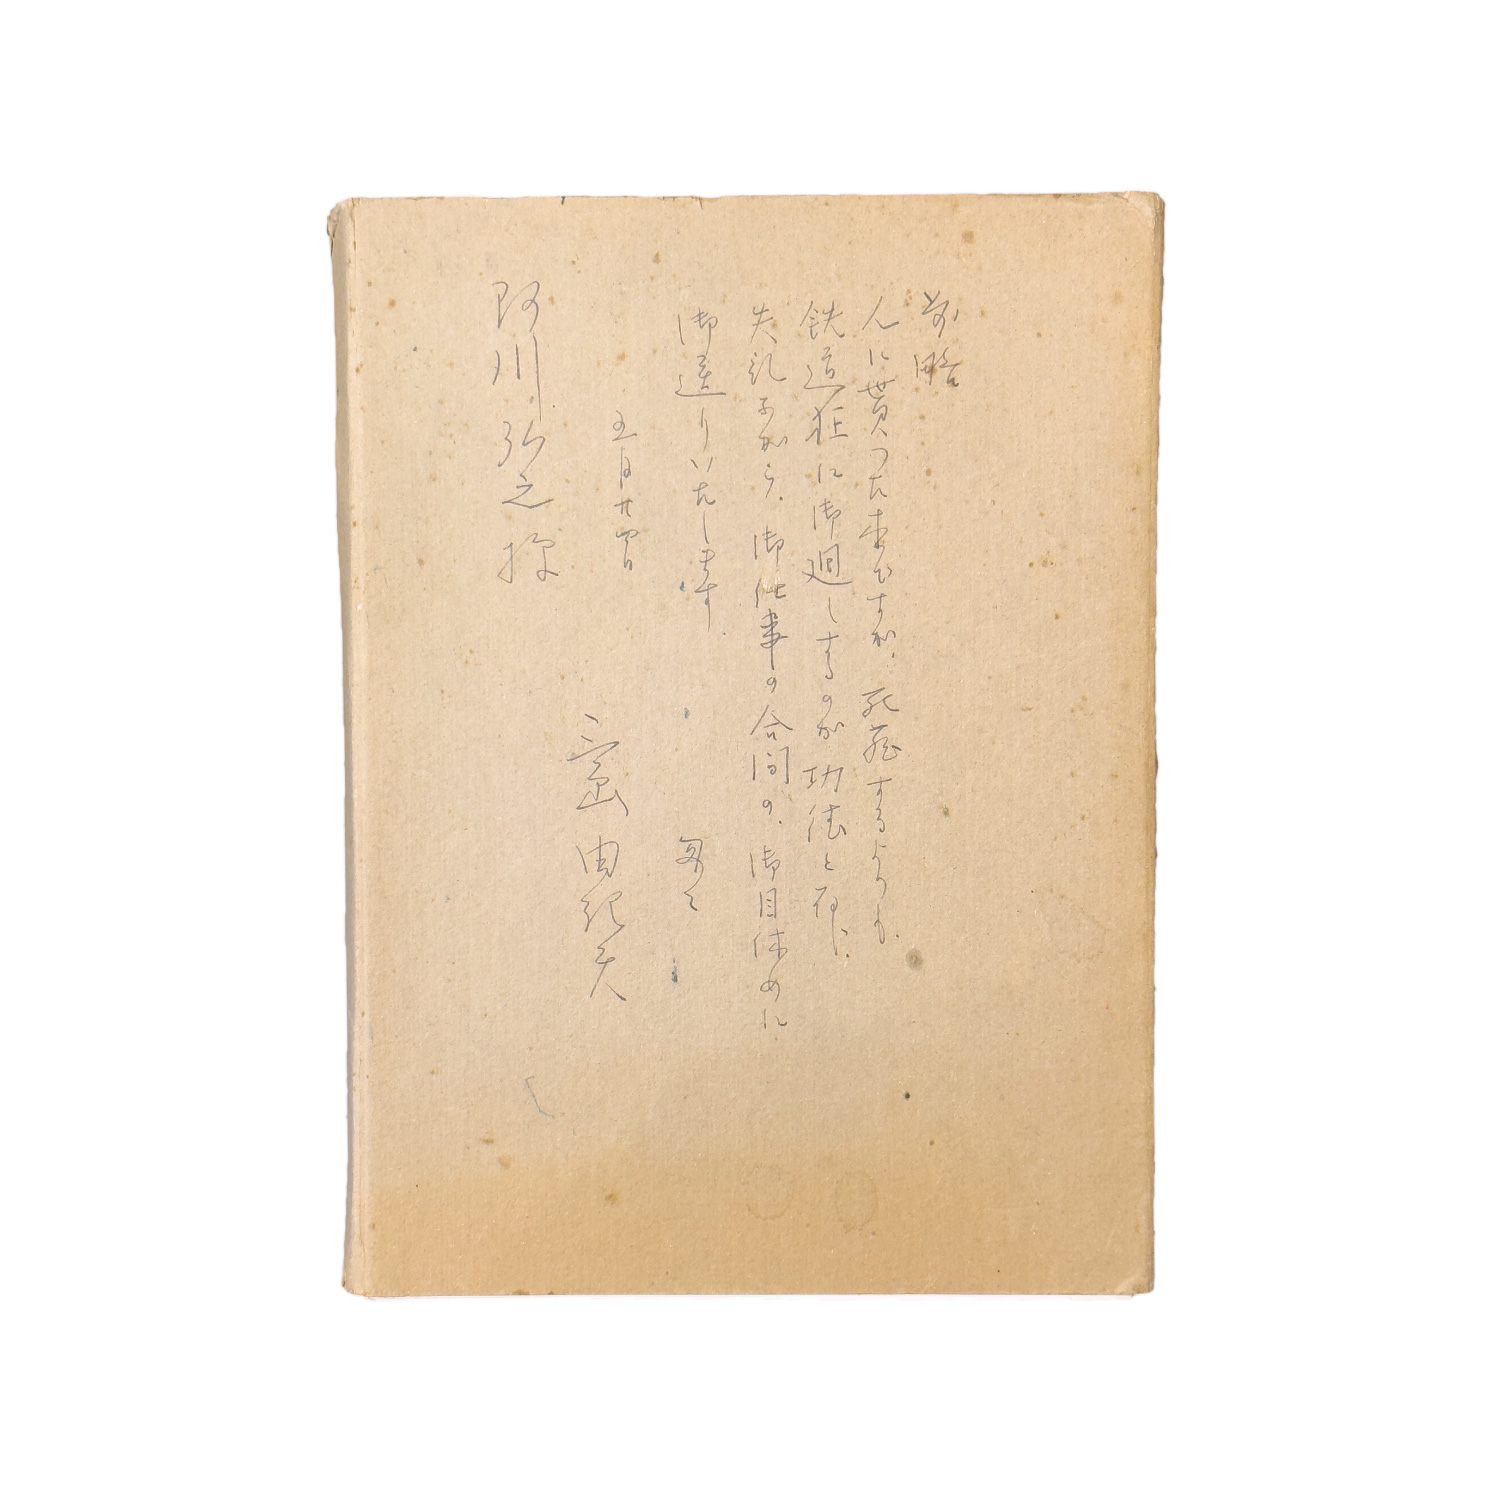 前略
人に貰つた本ですが、死蔵するよりも、
鉄道狂に御廻しするのが功徳と存じ、
失礼乍がら、御仕事の合間の、御目休めに
御送りいたします。 匆々
五月廿四日
三島由紀夫
阿川弘之様